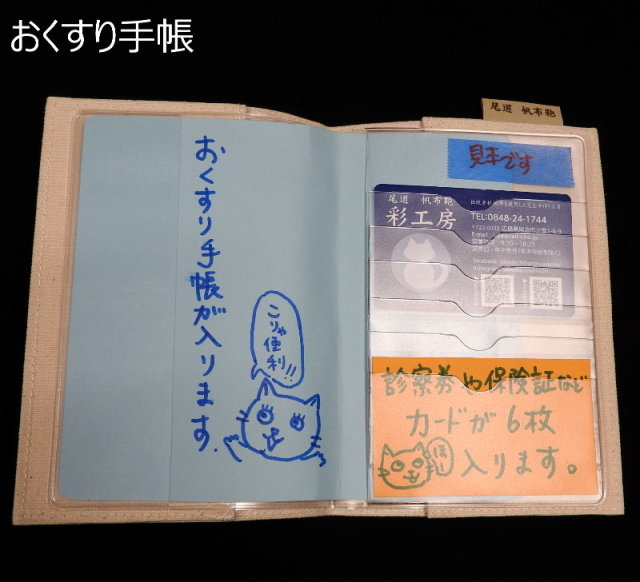 おくすり手帳
尾道 帆布鞄
おくすり手帳が入ります.
こりゃ
便利!!
見本です
尾道 帆布鞄
彩工房
TEL:0848-24-1744
診察券や保険証など
カードが6枚
入ります。